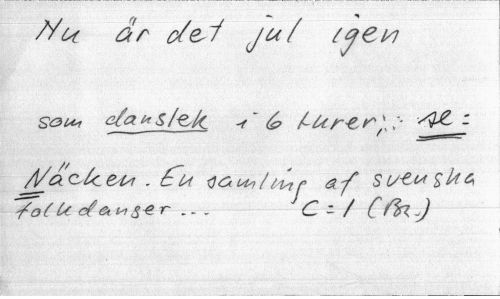 Nu är det jul igen
som danslek i 6 turer; se:
Näcken. En samling af svenska
folkdanser...
C=1 (Br.)